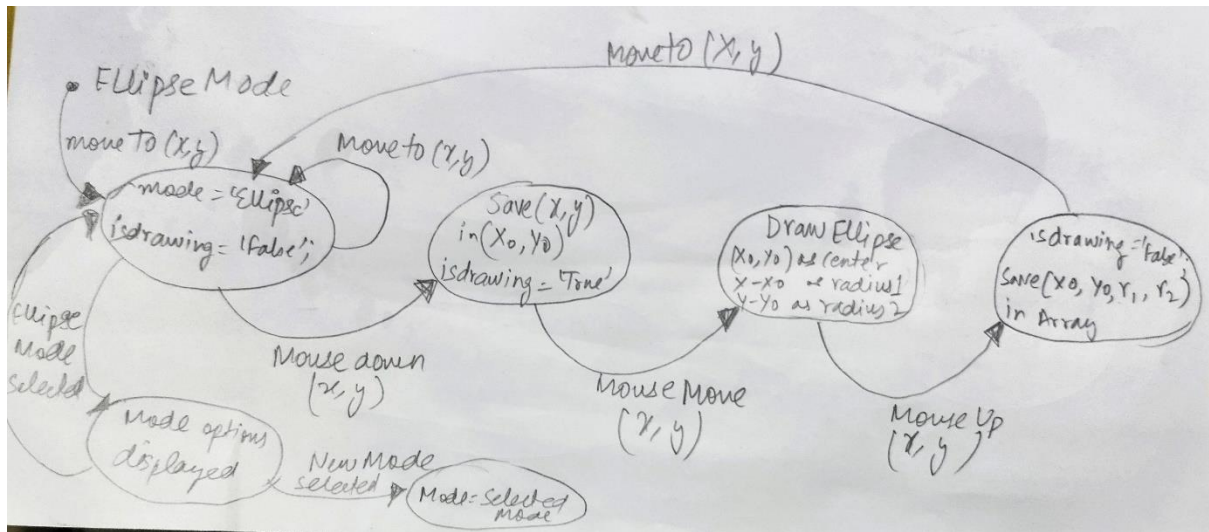 Moveto (X, y)
• Ellipse Mode
moveTo (x,y)
Moveto (x,y)
mode = 'Ellipse'
isdrawing = 'False';
Save(x, y)
in (X0, Y0)
isdrawing = 'True'
Draw Ellipse
(X0, Y0) as center
x-x0 as radius1
Y-Y0 as radius2
isdrawing = 'False'
Save(X0, Y0, r1, r2)
in Array
Ellipse
Mode
selected
Mouse down
(x, y)
Mouse Move
(x, y)
Mouse Up
(x, y)
Mode options
displayed
New Mode
selected
Mode = Selected
Mode